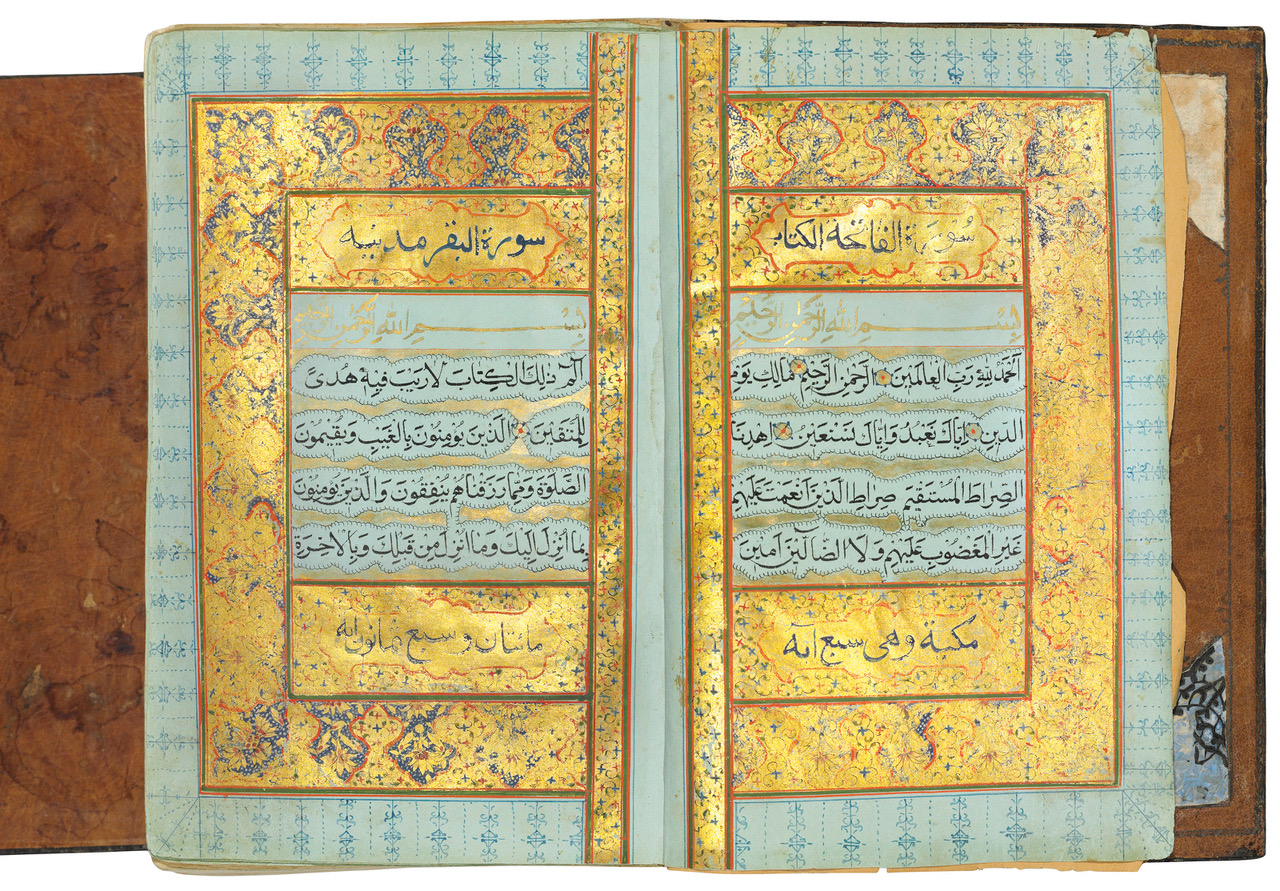 سورة الفاتحة الكتاب
بِسْمِ اللهِ الرَّحْمٰنِ الرَّحِيمِ
اَلْحَمْدُ لِلّٰهِ رَبِّ الْعَالَمِينَ الرَّحْمٰنِ الرَّحِيمِ مَالِكِ يَوْمِ
الدِّينِ اِيَّاكَ نَعْبُدُ وَاِيَّاكَ نَسْتَعِينُ اِهْدِنَا
الصِّرَاطَ الْمُسْتَقِيمَ صِرَاطَ الَّذِينَ اَنْعَمْتَ عَلَيْهِمْ
غَيْرِ الْمَغْضُوبِ عَلَيْهِمْ وَلَا الضَّالِّينَ آمِينَ
مكية وهي سبع آية
سورة البقر مدنية
بِسْمِ اللهِ الرَّحْمٰنِ الرَّحِيمِ
الٓمٓ ذٰلِكَ الْكِتَابُ لَا رَيْبَ فِيهِ هُدًى
لِلْمُتَّقِينَ الَّذِينَ يُؤْمِنُونَ بِالْغَيْبِ وَيُقِيمُونَ
الصَّلٰوةَ وَمِمَّا رَزَقْنَاهُمْ يُنْفِقُونَ وَالَّذِينَ يُؤْمِنُونَ
بِمَا اُنْزِلَ اِلَيْكَ وَمَا اُنْزِلَ مِنْ قَبْلِكَ وَبِالْاٰخِرَةِ
مائتان وسبع ثمانون آية